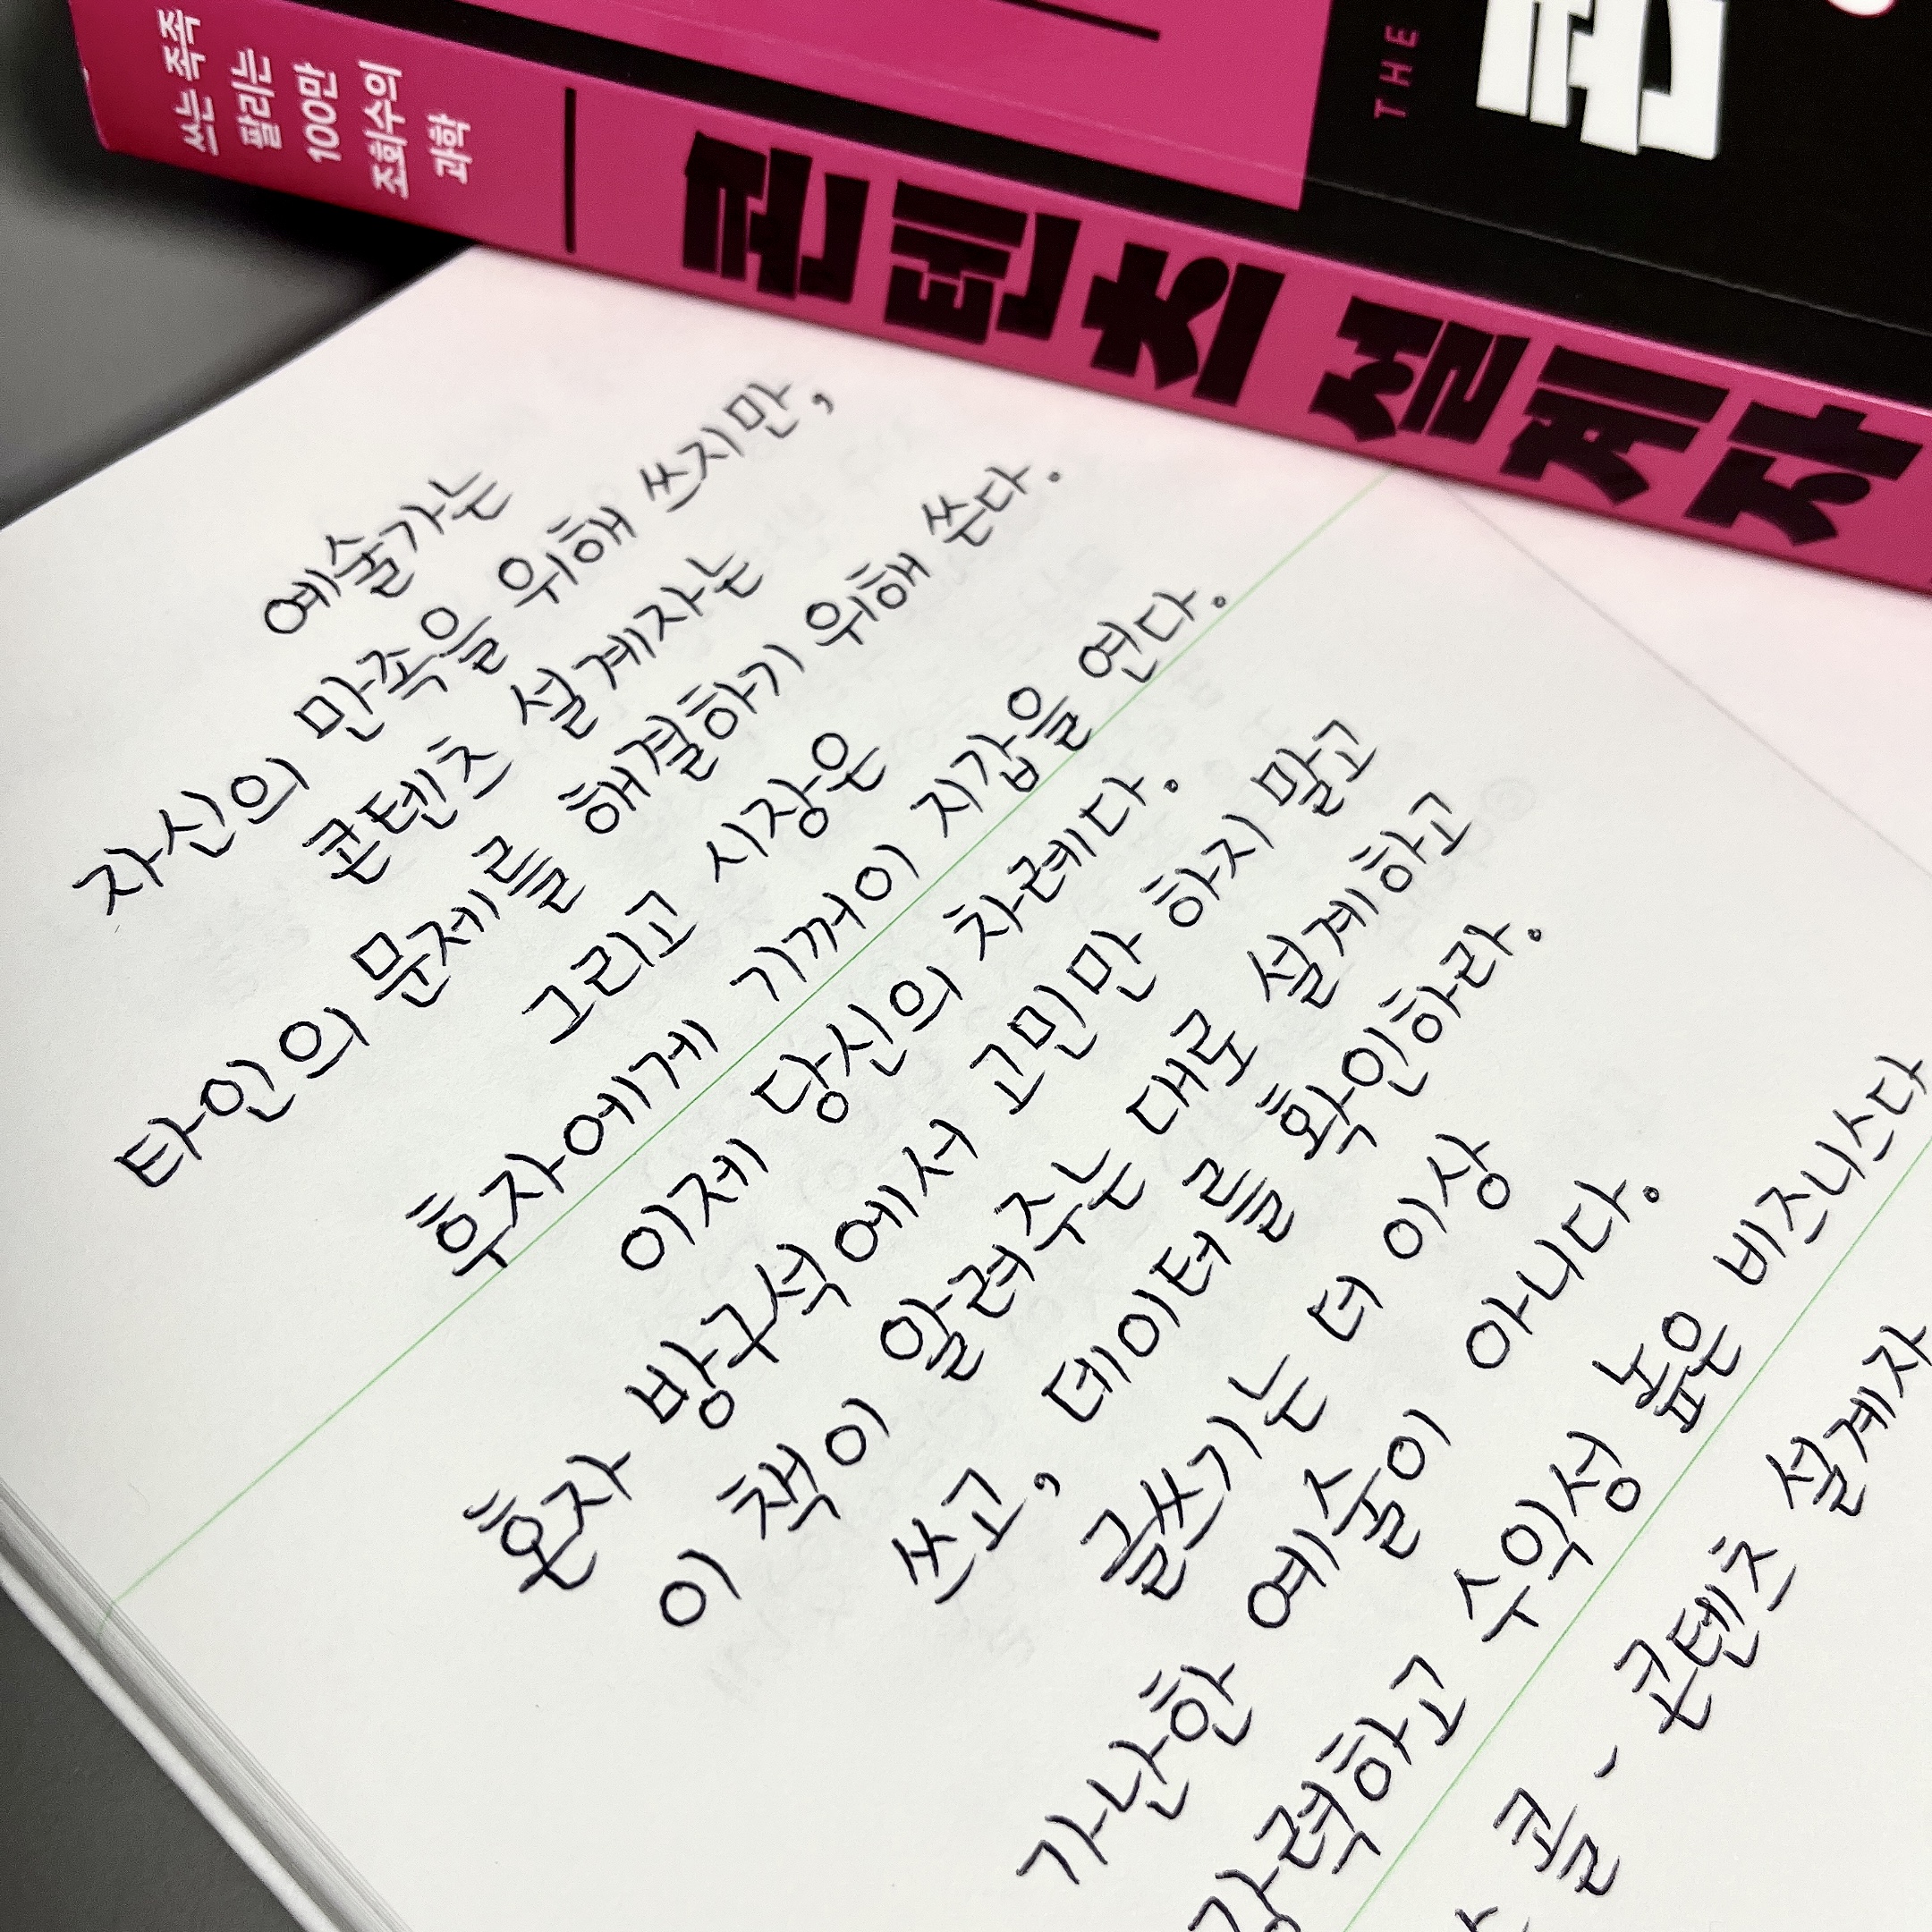 쓰는 족족
팔리는
100만
조회수의
과학
콘텐츠 설계자
THE
콘
예술가는
자신의 만족을 위해 쓰지만,
콘텐츠 설계자는
타인의 문제를 해결하기 위해 쓴다.
그리고 시장은
후자에게 기꺼이 지갑을 연다.
이제 당신의 차례다.
혼자 방구석에서 고민만 하지 말고
이 책이 알려주는 대로 설계하고
쓰고, 데이터를 확인하라.
글쓰기는 더 이상
가난한 예술이 아니다.
강력하고 수익성 높은 비즈니스다
콜 - 콘텐츠 설계자